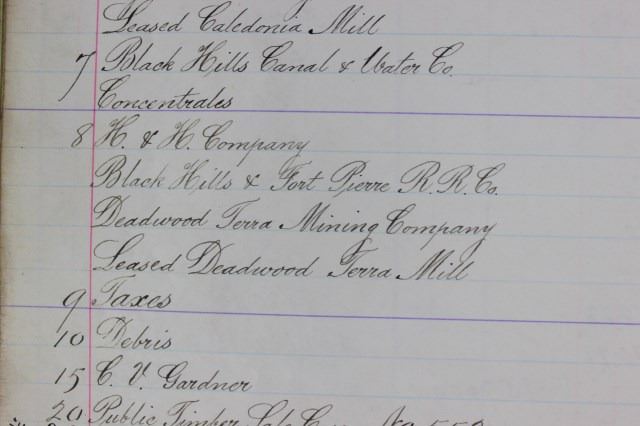 Leased Caledonia Mill
7 Black Hills Canal & Water Co.
Concentrales
8 H. & H. Company
Black Hills & Fort Pierre R.R. Co.
Deadwood Terra Mining Company
Leased Deadwood Terra Mill
9 Taxes
10 Debris
15 C. V. Gardner
20 Public Timber Sale